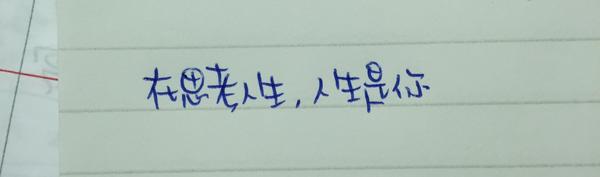 在思考人生，人生是你